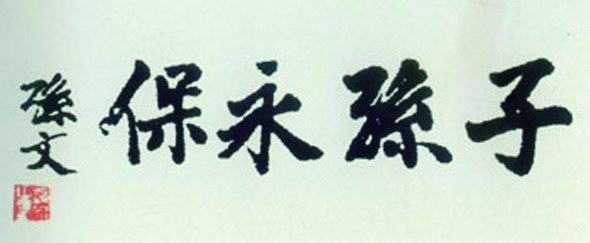 子孫永保
孫文